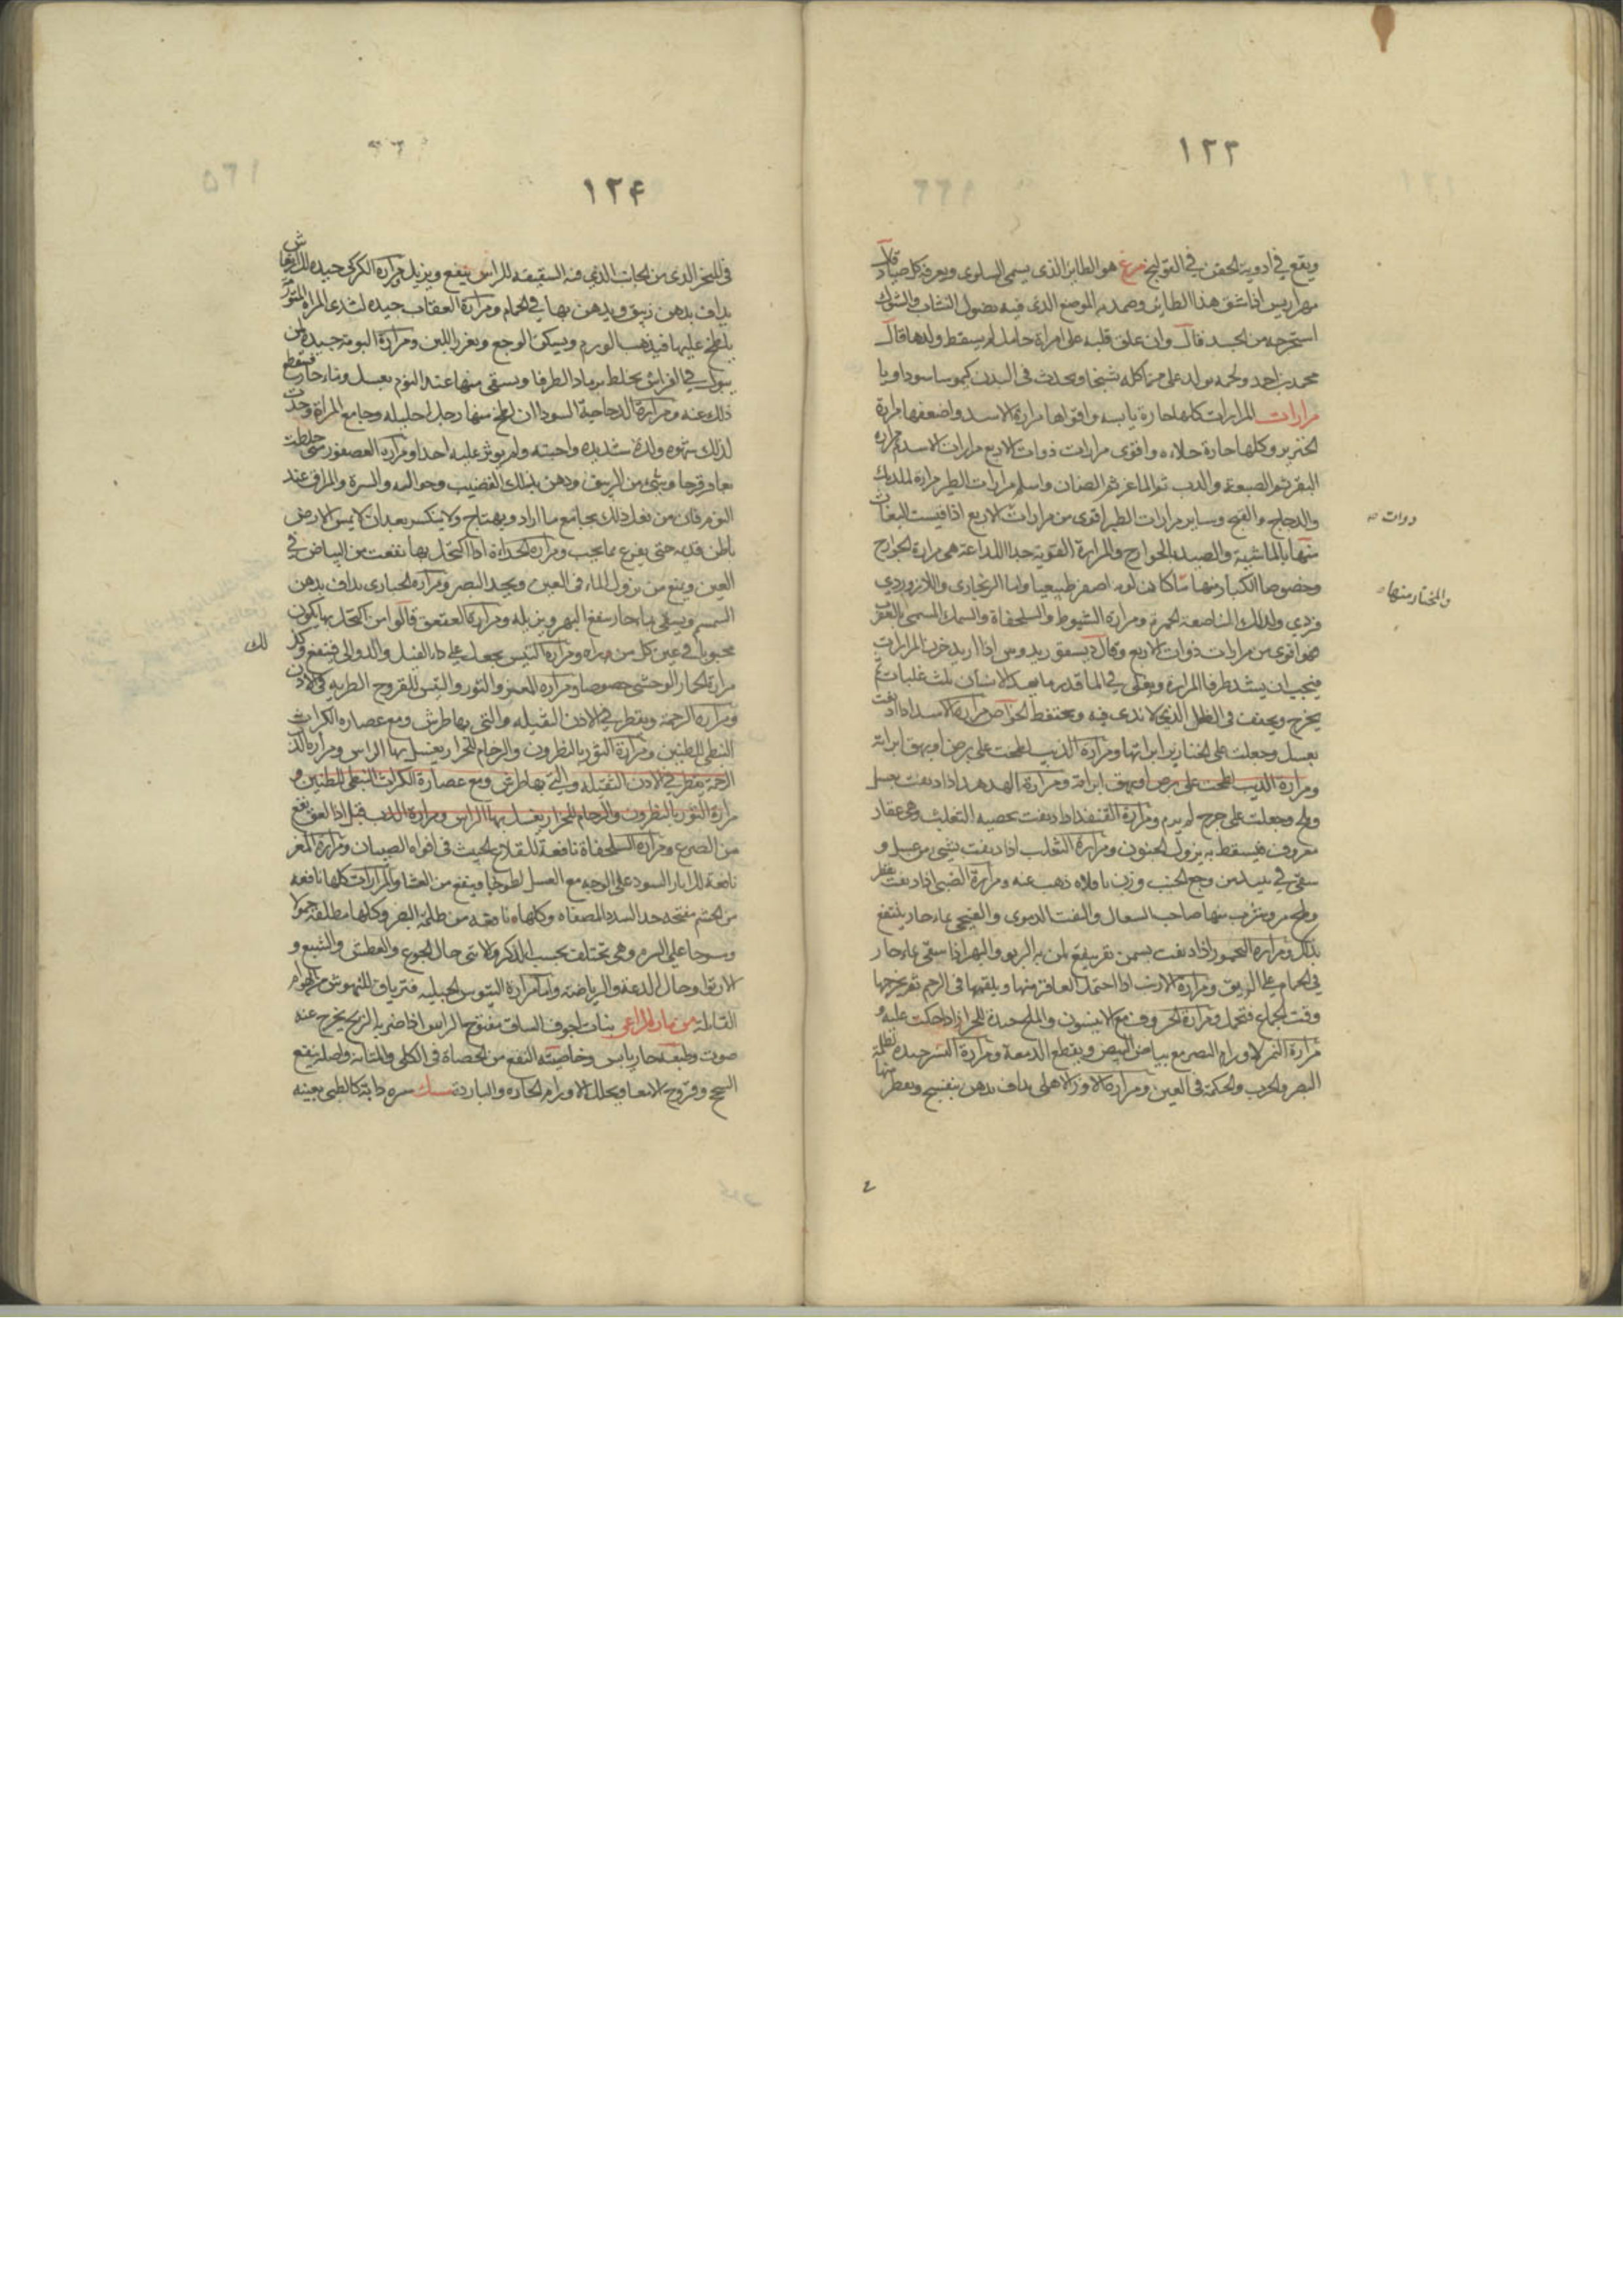 ١٢٣
ويقع في ادوية الحقن في القولنج مرغ هو الطاير الذي يسمى السلوى ويعرفه كل صياد قال
مهراريس اذا شق هذا الطاير وضمد به الموضع الذي فيه نصول النشاب والشوك
استخرجه من الجسد قال وان علق قلبه على امراة حامل لم يسقط ولدها قال
محمد بن احمد ولحمه يولد على من اكله تشنجا ويحدث في البدن كيموسا سوداويا
مرارات المرارات كلها حارة يابسه واقواها مرارة الاسد واضعفها مرارة
الخنزير وكلها حارة جلاءه واقوى مرارات ذوات الاربع مرارات الاسد ثم مراره
البقر ثم الضبعة والدب ثم الماعز ثم الضان واسلم مرارات الطير مرارة الديك
والدجاج والقبج وساير مرارات الطير اقوى من مرارات الاربع اذا قيست البغاث
ذوات صه
منها بالماشية والصيد بالجوارح والمرارة القوية جدا اللذاعة هي مرارة الجوارح
وخصوصا الكبار منها ما كان لونه اصفر طبيعيا واما الزنجاري واللازوردي
والمختار منها صه
فردي وكذلك الناصعة الحمرة ومرارة الشبوط والسلحفاة والسمك المسمى بالعقرب
هو اقوى من مرارات ذوات الاربع وقال ديسقوريدوس اذا اريد خزن المرارات
فيجب ان يشد طرفا المرارة ويغلى في الماء قدر ما يعد الانسان ثلث غلبات ثم
يخرج ويجفف في الظل الذي لا ندى فيه ويحتفظ الخواص مرارة الاسد اذا اديفت
بعسل وجعلت على الخنازير ابراتها ومرارة الذيب اذا طخت على برص او بهق ابراته
ومرارة الذيب اذا طخت على برص او بهق ابراته ومرارة الهدهد اذا اديفت بعسل
وملح وجعلت على جرح لم يدم ومرارة القنفذ اذا اديفت بخصيه الثعلب وهي عقار
معروف فيسقط به يزول الجنون ومرارة الثعلب اذا ديفت بشيء من عسل و
سقي في نبيذ من وجع الجنب وزن باقلاه ذهب عنه ومرارة الضبي اذا ديفت بقطر
وملح مر وشرب منها صاحب السعال والنفث الدموي والقيحي بماء حار ينتفع
بذلك ومراره اليحمور اذا ديفت بسمن بقر ينفع لمن به الربو والبهر اذا سقي بماء حار
في الحمام على الريق ومرارة الارنب اذا احتملت العاقر منها ويلقمها في الرحم ثم تخرجها
وقت الجماع فتحمل ومرارة الخروف مع الانيسون والملح جيدة للحزاز اذا حكت عليه و
مرارة النمر لاورام البصر مع بياض البيض ويقطع الدمعة ومرارة النسر جيده لظلمة
البصر والجرب والحكة في العين ومرارة الاوز الاهلي يداف بدهن بنفسج ويقطر منها
١٢۴
في المنخر الذي من الجانب الذي فيه الشقيقه للراس ينفع ويزيل ومرارة الكركي جيده للارتعاش
يداف بدهن زنبق ويدهن بها في الحمام ومرارة العقاب جيده لثدي المراه المتورم
يلطخ عليها فيذهب الورم ويسكن الوجع ويغزر اللبن ومرارة البومة جيدة لمن
يبول في الفراش يخلط برماد الطرفا ويسقى منها عند النوم بعسل وماء حار فينقطع
ذلك عنه ومرارة الدجاجة السودا ان لطخ منها رجل احليله وجامع المراة وجدت
لذلك شهوه ولذة شديده واحبته ولم يوثر عليه احدا ومرارة العصفور متى خلطت
بعاقرقرحا وشيء من الزيبق ودهن بذلك القضيب وحواليه والسرة والمراق عند
النوم فان من فعل ذلك يجامع ما اراد ويهتاج ولا ينكسر بعد ان لا يمس الارض
باطن قدميه حتى يفرغ مما يجب ومراره الحداة اذا اكتحل بها نفعت من البياض في
العين ويمنع من نزول الماء في العين ويحد البصر ومرارة الحبارى يداف بدهن
السمسم ويسقى بماء حار ينفع البهر ويزيله ومرارة العقعق قالوا من اكتحل بها يكون
محبوبا في عين كل من يراه ومراره التيس يجعل على داء الفيل والدوالي فينفع وكذلك
مرارة الحمار الوحشي خصوصا ومراره العنز والثور والتيس للقروح الطريه في الاذن
ومرارة الرخمة ويقطر في الاذن الثقيله والتي بها طرش ومع عصاره الكراث
النبطي للطنين ومرارة الثور بالنطرون والرخام للحزاز يغسل بها الراس ومرارة
الرخمة يقطر في الاذن الثقيله والتي بها طرش ومع عصارة الكراث النبطي للطنين و
مرارة الثور بالنطرون والرخام للحزاز يغسل بها الراس ومرارة الدب قيل اذا لعق ينفع
من الصرع ومراره السلحفاة نافعة للقلاع الخبيث في افواه الصبيان ومرارة المعز
نافعة للاثار السود على الوجه مع العسل لطوخا وينفع من العشا والمرارات كلها نافعه
من الخشم مفتحه جدا لسدد المصفاه وكلها نافعه من ظلمة البصر وكلها مطلقه حمولا
ومسوحا على السره وهي تختلف بحسب الذكر والانثى حال الجوع والعطش والشبع و
الارتوا وحال الدعة والرياضة واما مرارة التيوس الجبلية فترياق للنهوش من الهوام
القاتلة مزمار الراعي نبات اجوف الساق مفتوح الراس اذا ضربه الريح يخرج عنه
صوت وطبعه حار يابس وخاصيته النفع من الحصاة في الكلى والمثانه واصله ينفع
السحج وقروح الامعا ويحلل الاورام الحاره والبارده مسك سره دابة كالظبي بعينه